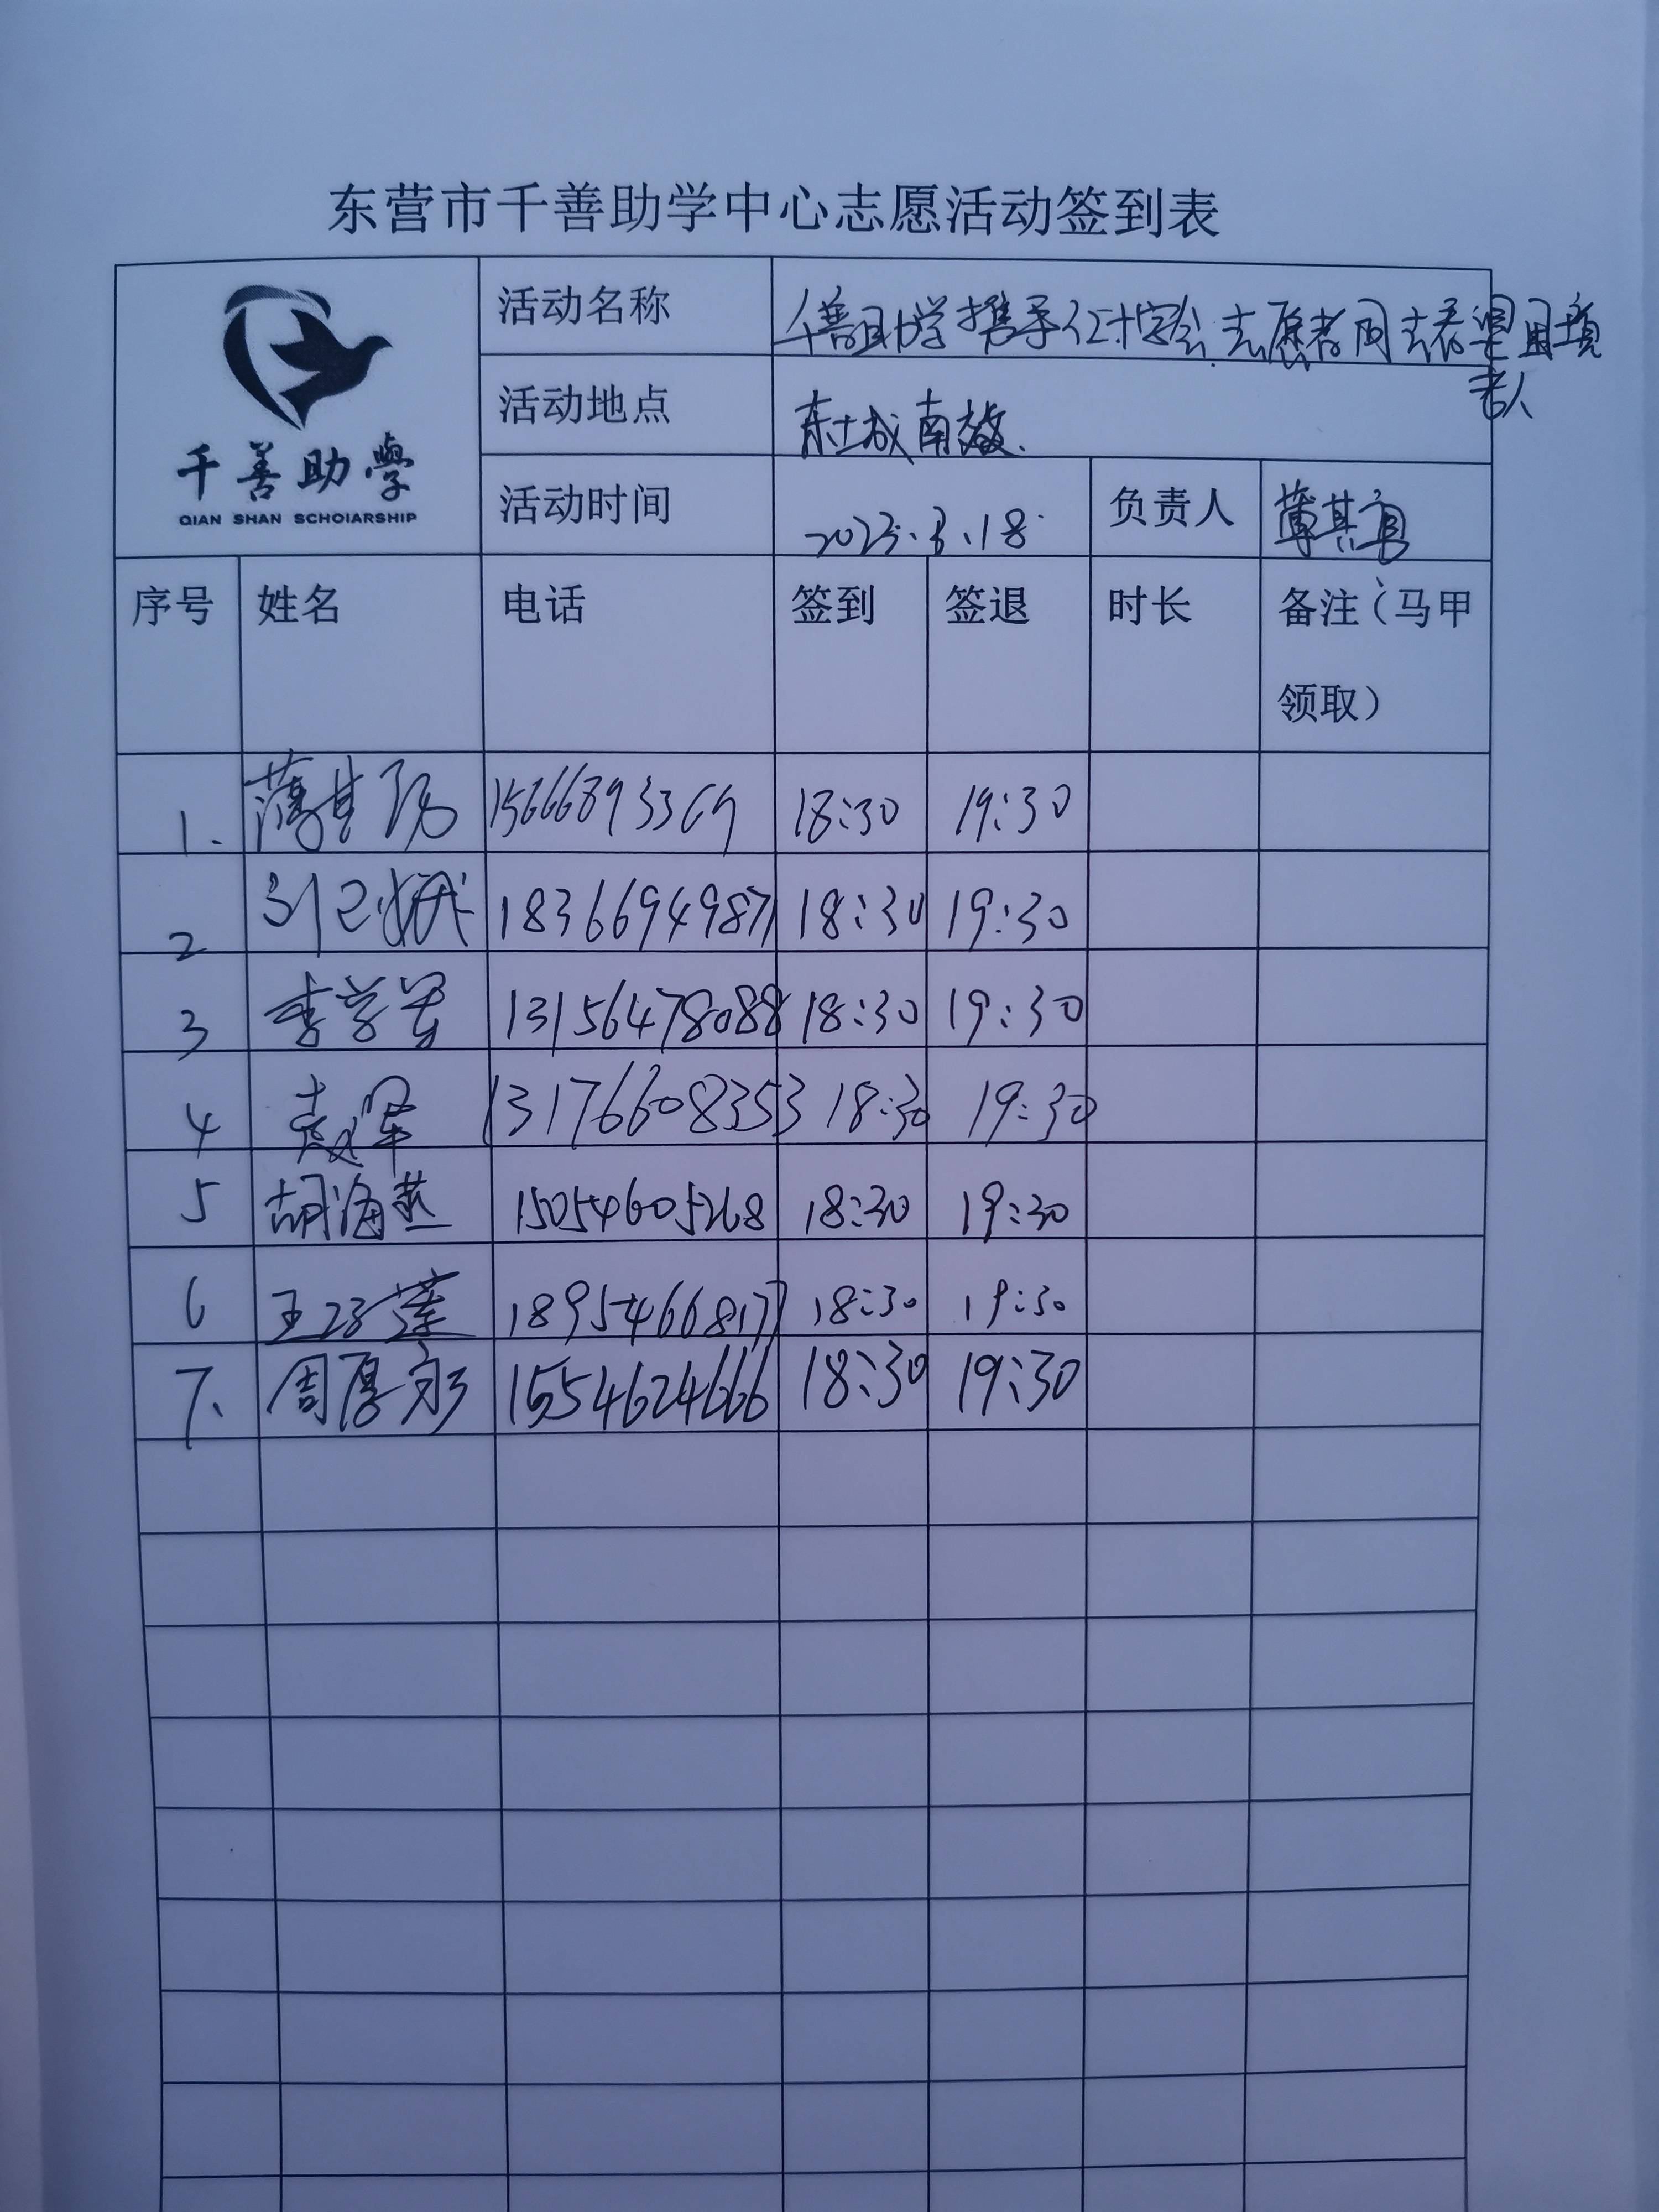 东营市千善助学中心志愿活动签到表
千善助學
QIAN SHAN SCHOlARSHIP
活动名称 千善助学携手红十字会志愿者同去看望困境
老人
活动地点 东城南
活动时间 2023.3.18 负责人 薄其
序号 姓名 电话 签到 签退 时长 备注（马甲
领取）
1. 薄其 15666893369 18:30 19:30
2 18366949871 18:30 19:30
3 李学 13156478088 18:30 19:30
4 袁军 13176608353 18:30 19:30
5 胡海燕 15054605268 18:30 19:30
6 王 莲 18954668177 18:30 19:30
7. 周厚永 15554624666 18:30 19:30